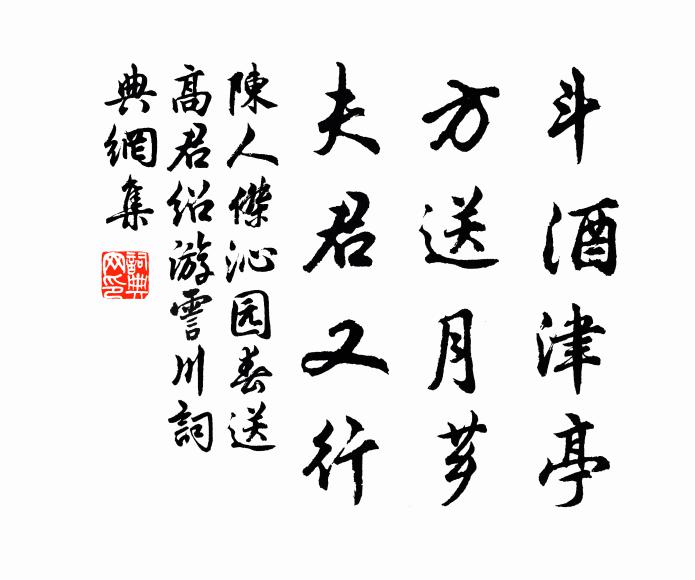 斗酒津亭
方送月芗
夫君又行
陳人傑沁园春送
高君绍游霅川詞
典網集
詞典網印